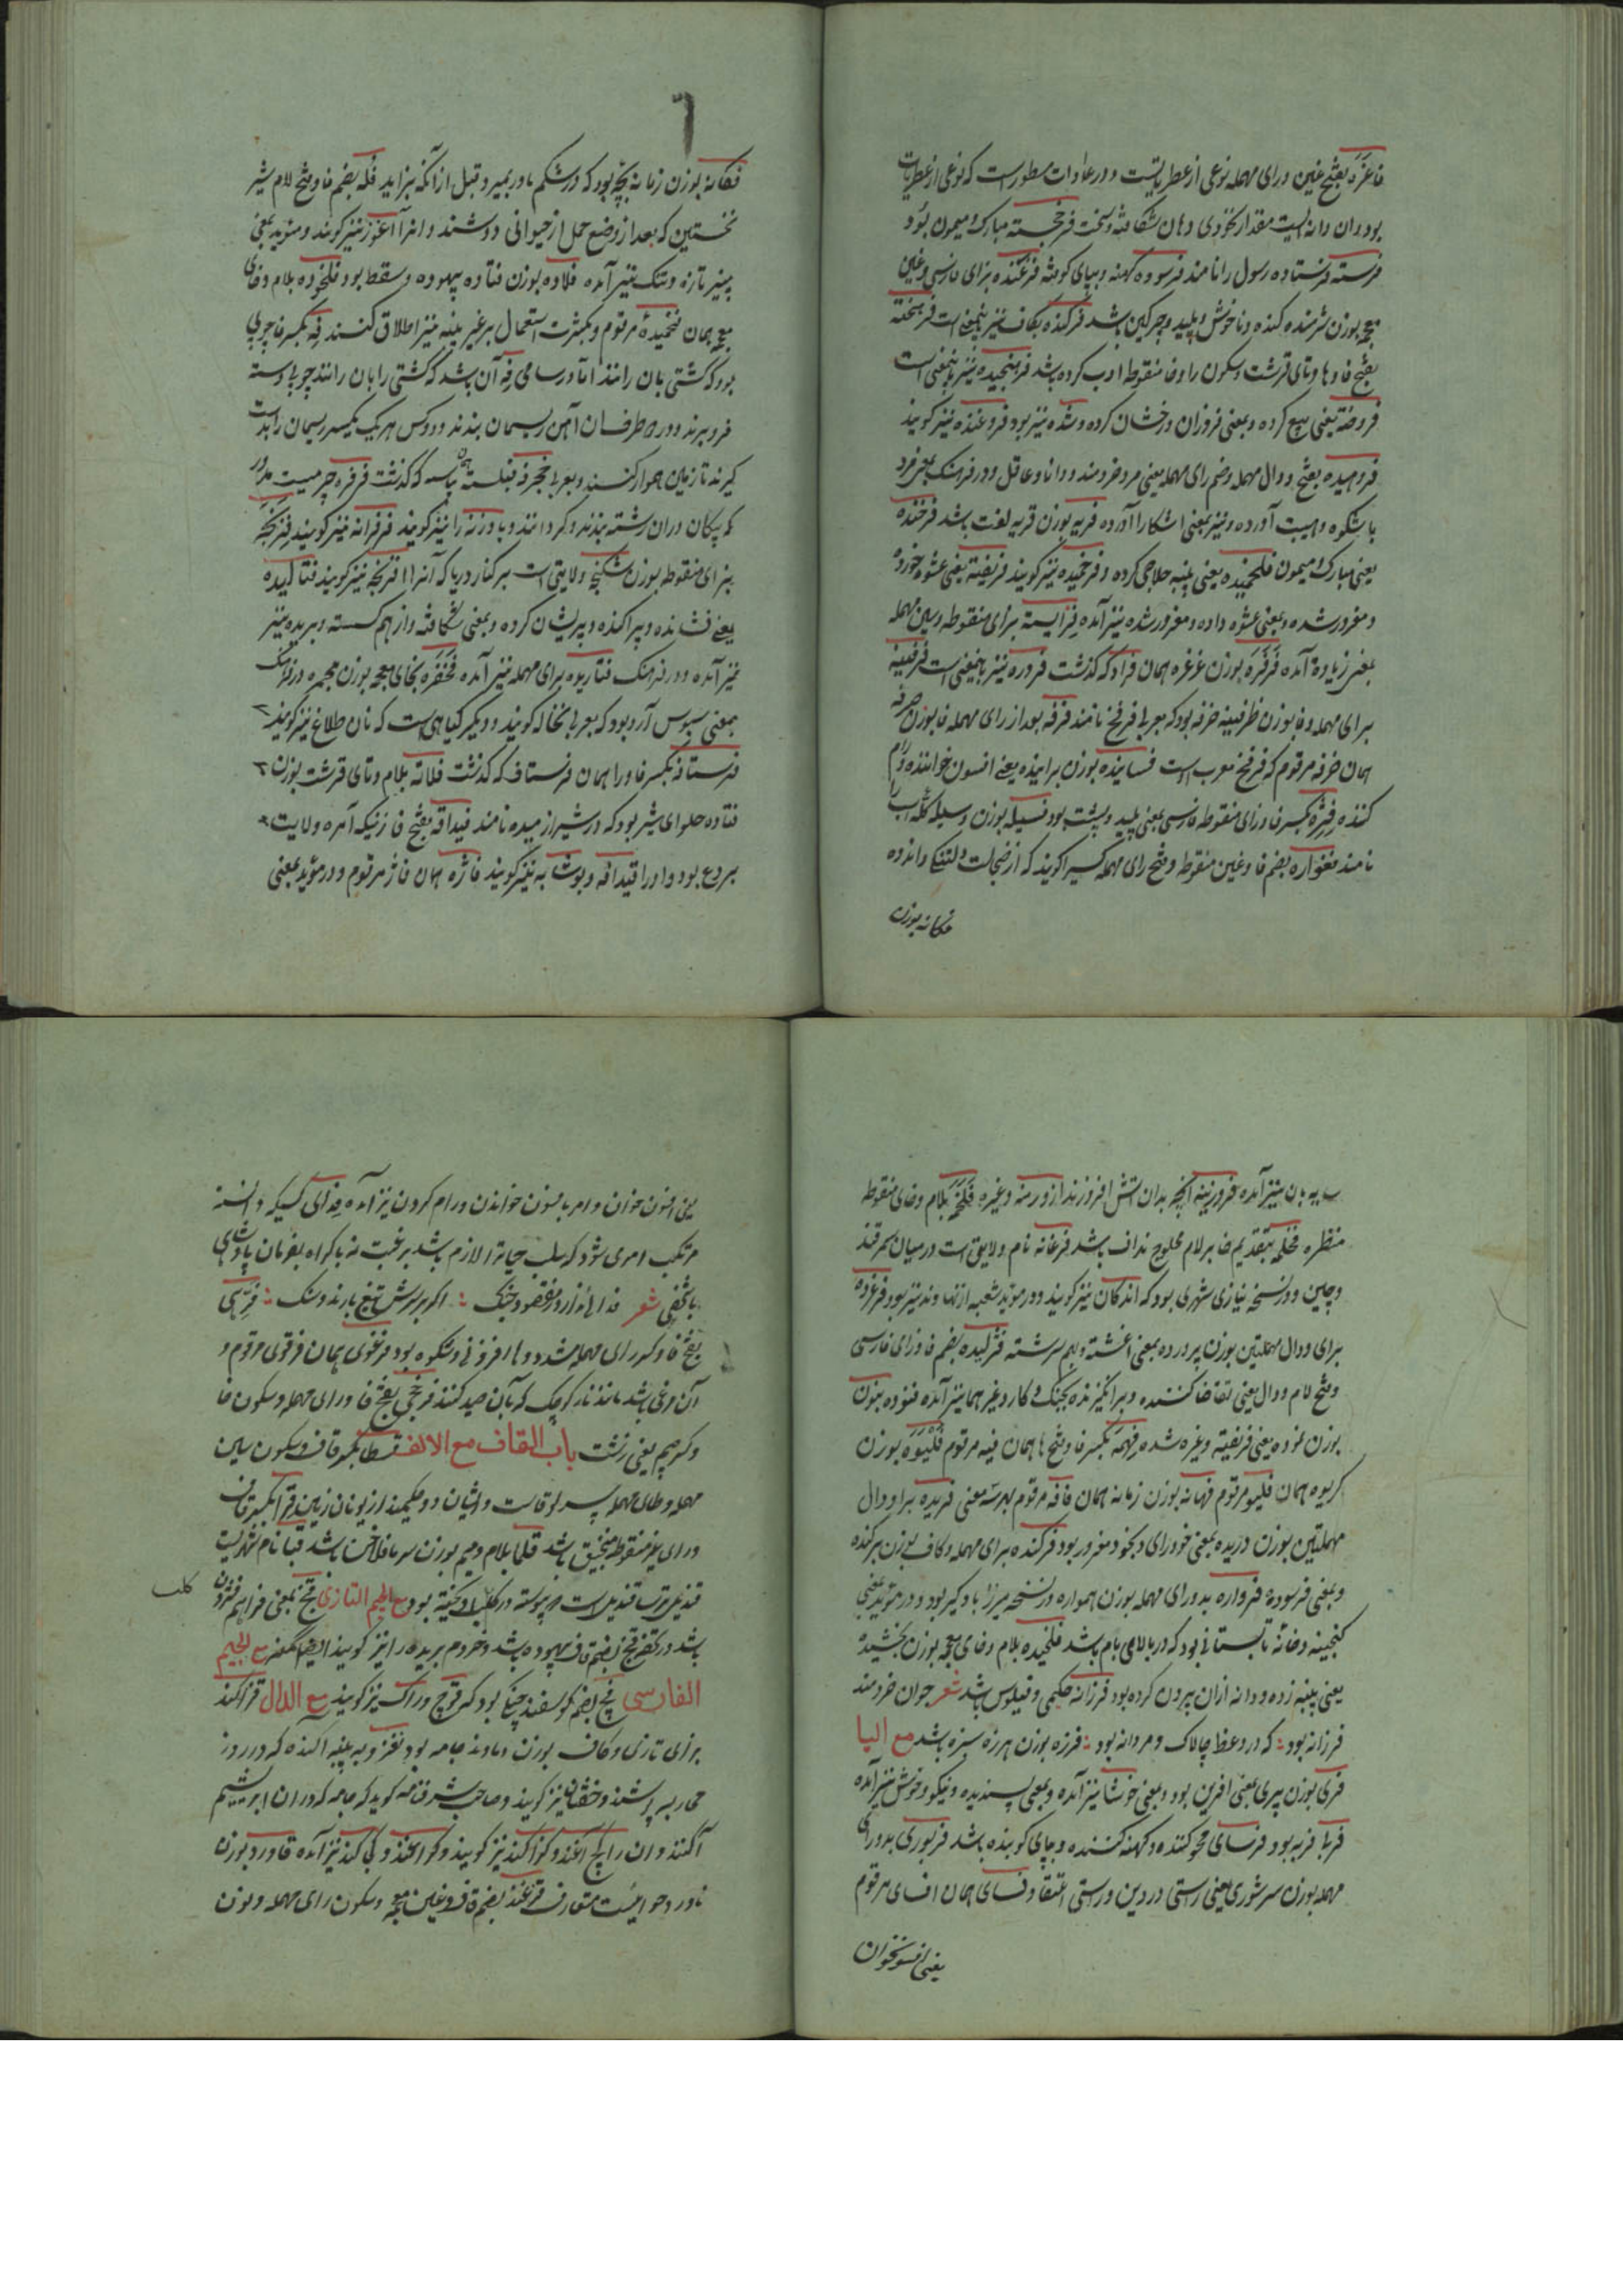 فاغره بفتح غین و رای مهمله نوعی از عطریاتست و در عادات مسطورست که نوعی از عطریات
بود و آن دانه ایست مقدار نخودی دهان شکافته و سخت فرخجسته مبارک و میمون بود
فرسته فرستاده رسول را نامند فرسوده کهنه و بپای کوفته فرغنده بزای فارسی و غین
معجمه بوزن شرمنده کنده و ناخوش و پلید و چرکین باشد فرکنده بکاف نیز بهمین معنی است فرهخته
بفتح فا و ها و تای قرشت و سکون را و خا منقوطه ادب کرده باشد فرهنجیده نیز بهمین معنی است
فروخته یعنی بیع کرده و بمعنی فروزان و رخشان کرده و شده نیز بود فروغنده نیز گویند
فروهیده بفتح و دال مهمله و ضم رای مهمله یعنی مرد خردمند و دانا و عاقل و در فرهنک بمعنی فرد
با شکوه و هیبت آورده و نیز بمعنی اشکارا آورده فریه بوزن قریه لعنت باشد فرخنده
یعنی مبارک و میمون فلخمیده یعنی پنبه حلاجی کرده و فرخمیده نیز گویند فریفته یعنی عشوه خورده
و مغرور شده و بمعنی عشوه داده و مغرور شده نیز آمده فزایسته بزای منقوطه و سین مهمله
بمعنی زیاده آمده فرغره بوزن غرغره همان فراد که گذشت فروره نیز بهمین معنی است فرفینه
برای مهمله و فا بوزن ظرفینه خرفه بود که بعربی فرفخ نامند فرفه بعد از رای مهمله فا بوزن حرفه
همان خرفه مرقوم که فرفخ معرب اوست فساینده بوزن براینده یعنی افسون خواننده و رام
کننده فژه بکسر فا و زای منقوطه فارسی بمعنی پلید و پشت بود فسیله بوزن وسیله گله اسب را
نامند فغواره بضم فا و غین منقوطه و فتح رای مهمله کسیرا گویند که از خجالت و دلتنگی و اندوه
فکانه بوزن
فکانه بوزن زمانه بچه بود که در شکم مادر بمیرد قبل از آنکه بزاید فله بضم فا و فتح لام شیر
نخستین که بعد از وضع حمل از حیوانی دوشند و انرا آغوز نیز گویند و در موید بمعنی
پنیر تازه و تنک نیز آمده فلاده بوزن فتاده بیهوده و سقط بود فلخوده بلام و خای
معجمه همان فخمیده مرقوم و بکثرت استعمال بر غیر پنبه نیز اطلاق کنند فه بکسر فا چوبی
بود که کشتی بان رانند اما در سامی فه آن باشد که کشتی را بان رانند چوبی و دسته
فرو برند و در طرف ان آهن ریسمان بندند و دو کس هر یک یکسر ریسمان را بدست
گیرند تا زمین هموار کنند و بعربی مجرفه فنکسته بپاسه که گذشت فرفره چرمیست مدور
که پیکان دران رشته بندند و گردانند و بادزنه را نیز گویند فرفرانه نیز گویند فرنجه
بزای منقوطه بوزن شکنجه ولایتی است بر کنار دریا که آنرا افرنجه نیز گویند فتالیده
یعنی فشانده و پراکنده و پریشان کرده و بمعنی شکافته و از هم گسسته و بریده نیز
نیز آمده و در فرهنک فتاریده برای مهمله نیز آمده فخفره بخای معجمه بوزن مجمره در فرهنک
بمعنی سبوس آرد بود که بعربی نخاله گویند و دیگر گیاهی است که نان طلاغ نیز گویند
فرستافه بکسر فا و را همان فرستاف که گذشت فلاته بلام و تای قرشت بوزن
فتاده حلوای شیر بود که در شیراز میده نامند فیداقه بفتح فا زنیکه آمره ولایت
بردع بود و او را قیدافه و نوشابه نیز گویند فاژه همان فاژ مرقوم و در موید بمعنی
سایه بان نیز آمده فروزینه انچه بدان اتش افروزند از و رمنه و غیره فلخه بلام و خای منقوطه
منظره فخلمه بتقدیم خا بر لام محلوج نداف باشد فرغانه نام ولایتی است در میان سمرقند
و چین و در نسخه نیازی شهری بود که اندکان نیز گویند و در موید شعبه از نهاوند نیز بود فرغرده
برای و دال مهملتین بوزن پرورده بمعنی اغشته و بهم سرشته فژلیده بضم فا و زای فارسی
و فتح لام و دال یعنی تقاضا کننده و برانگیزنده بجنک و کار و غیر هما نیز آمده فنوده بنون
بوزن نموده یعنی فریفته و غره شده فهمه بکسر فا و فتح ها همان فیه مرقوم فلیوه بوزن
گریوه همان فلیو مرقوم فهانه بوزن زمانه همان فافه مرقوم بهر سه معنی فریده برا و دال
مهملتین بوزن دریده بمعنی خود رای و بخود مغرور بود فرکنده برای مهمله و کاف بوزن برکنده
و بمعنی فرسوده فرواره بدو رای مهمله بوزن همواره در نسخه میرزا باد گیر بود و در موید بمعنی
گنجینه و خانه تابستانی بود که در بالای بام باشد فلخیده بلام و خای معجمه بوزن بخشیده
یعنی پنبه زده و دانه از ان بیرون کرده بود فرزانه حکیمی و فیلوس باشد شعر جوان خردمند
فرزانه بود : که در وعظ چالاک و مردانه بود : فرزه بوزن هرزه سبزه باشد مع الیا
فری بوزن پری بمعنی افرین بود و بمعنی خوشا نیز آمده و بمعنی پسندیده و نیکو و خوش نیز آمده
فربا فربه بود فرسای محو کننده و کهنه کننده و بپای کوبنده باشد فربوری بدو رای
مهمله بوزن سرشوری یعنی راستی در دین و راستی اعتقاد فسای همان افسای مرقوم
یعنی افسونخوان
یعنی افسون خوان و امر بافسون خواندن و رام کردن نیز آمده فدای کسیکه دانسته
مرتکب امری شود که سلب حیات را لازم باشد برغبت نه باکراه بفرمان پادشاهی
یا شخصی شعر فدائی ندارد ز مقصود چنک : اگر بر سرش تیغ بارند و سنک : فرهی
بفتح فا و کسر رای مهمله مشدد و ها افزونی و شکوه بود فرغوی همان فرقوی مرقوم و
آن مرغی باشد مانند باز کوچک که بآن صید کنند فرخجی بفتح فا و رای مهمله و سکون خا
و کسر جیم یعنی زشت باب القاف مع الالف قسطا بکسر قاف و سکون سین
مهمله و طای مهمله پسر لوقاست و ایشان دو حکیمند از یونان زمین قرا بکسر قاف
و رای غیر منقوطه منجنیق باشد قلما بلام و میم بوزن سرما فلاخن باشد قبا نام شهریست
قندیل ترسا قندیلیست که پیوسته در کلیسا اویخته بود مع الجیم التازی قج بمعنی فراهم فشردن
کلب
باشد در کتفج قج بضم قاف بیهوده باشد و خر دم بریده را نیز گویند ایضا مع الجیم
الفارسی قچ بضم گوسفند جنگی بود که قوچ و راک نیز گویند مع الدال قزاکند
بزای تازی و کاف بوزن دماوند جامه بود بغز و به پنبه آگنده که در روز
حرب پوشند و خفتان نیز گویند و صاحب شرفنامه گوید که جامه که دران ابریشم
آگنند و ان را کج اغند و کژاکند نیز گویند و کژاغند و کی کند نیز آمده قاورد بوزن
ناورد حوائیست متعارف قرغند بضم قاف و غین معجمه و سکون رای مهمله و نون